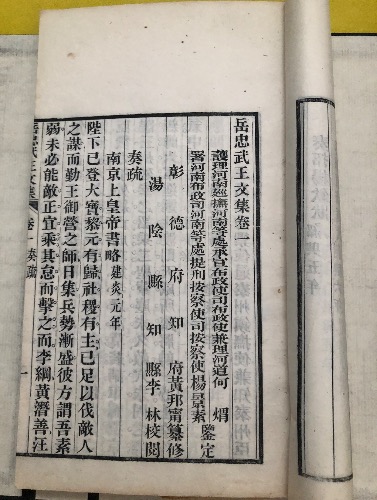 岳忠武王文集卷一
護理河南巡撫河南等處承宣布政使司布政使兼理河道何 煟
署河南布政司河南等處提刑按察使司按察使楊景素鑒定
彰德府知府黃邦甯纂修
湯陰縣知縣李林校閱
奏疏
南京上皇帝書略 建炎元年
陛下已登大寶黎元有歸社稷有主已足以伐敵人
之謀而勤王御營之師日集兵勢漸盛彼方謂吾素
弱未必能敵正宜乘其怠而擊之而李綱黃潛善汪
岳忠武王文集 卷一 奏疏 一